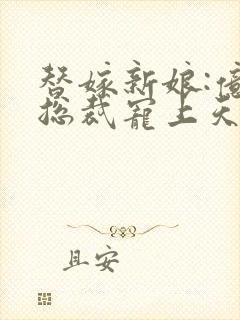 替嫁新娘:億
总裁宠上天
且安